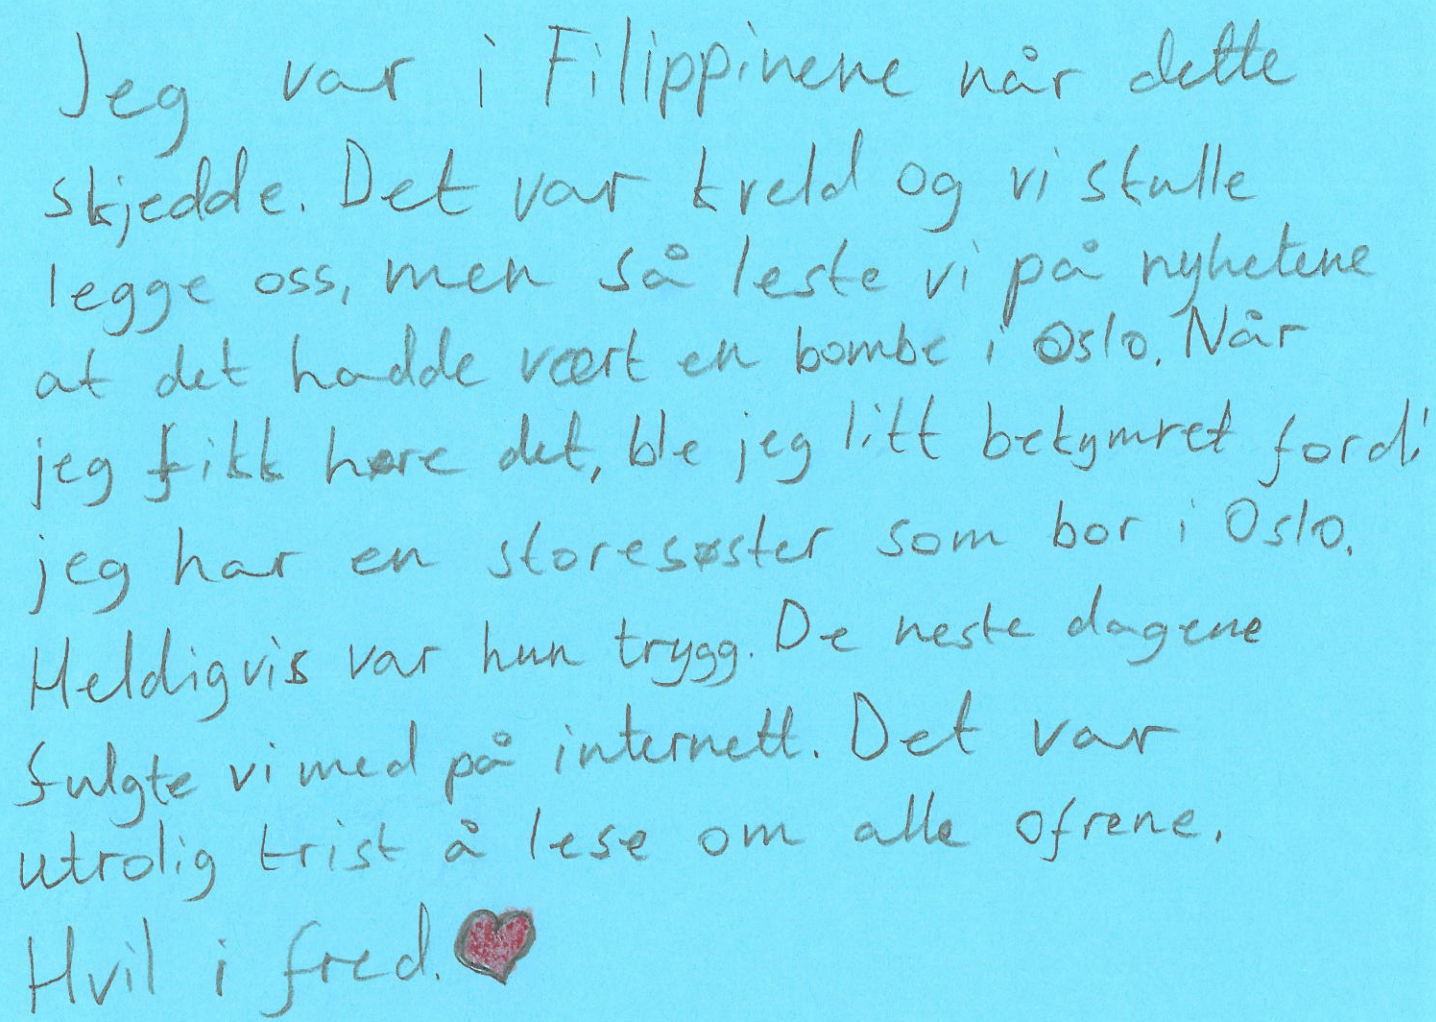 Jeg var i Filippinene når dette
skjedde. Det var kveld og vi skulle
legge oss, men så leste vi på nyhetene
at det hadde vært en bombe i Oslo. Når
jeg fikk høre det, ble jeg litt bekymret fordi
jeg har en storesøster som bor i Oslo.
Heldigvis var hun trygg. De neste dagene
fulgte vi med på internett. Det var
utrolig trist å lese om alle ofrene.
Hvil i fred.